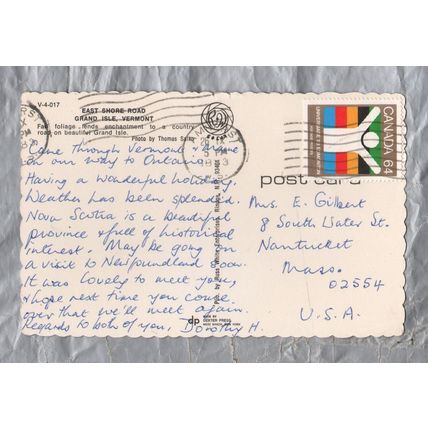 V-4-017
EAST SHORE ROAD
GRAND ISLE, VERMONT
Fall foliage lends enchantment to a country
road on beautiful Grand Isle.
Photo by Thomas
Came through Vermont & have
on our way to Ontario.
Having a wonderful holiday,
Weather has been splendid.
Nova Scotia is a beautiful
province & full of historical
interest. May be going on
a visit to Newfoundland soon.
It was lovely to meet you,
& hope next time you come
over that we'll meet again.
Regards to both of you, Dorothy H.
post card
CANADA 64
Mrs. E. Gilbert
8 South Water St.
Nantucket
Mass.
02554
U.S.A.
dp
MADE BY
DEXTER PRESS
WEST NYACK, NEW YORK